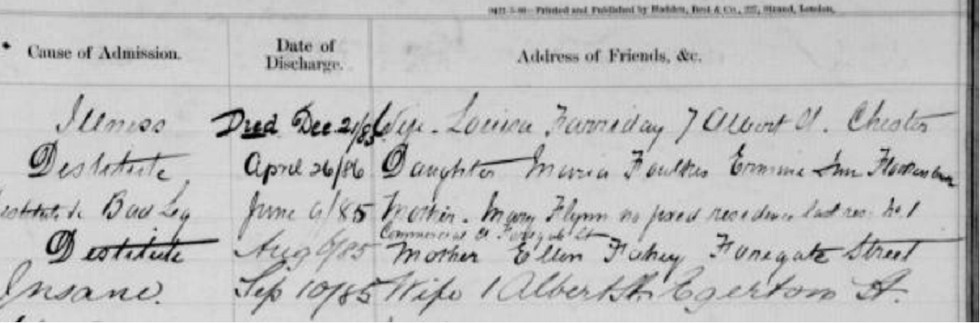 Printed and Published by Hadden, Best & Co., 227, Strand, London.
Cause of Admission. Date of Discharge. Address of Friends, &c.
Illness Died Dec 21/85 Wife - Louisa Farriday 7 Albert St. Chester
Destitute April 26/86 Daughter Maria Faulkes Ermine Inn
Bad Leg June 9/85 Mother - Mary Flynn no fixed residence last res: No 1
Commercial St
Destitute Aug 6/85 Mother Ellen Fahey Foregate Street
Insane. Sep 10/85 Wife 1 Albert St. Egerton St.